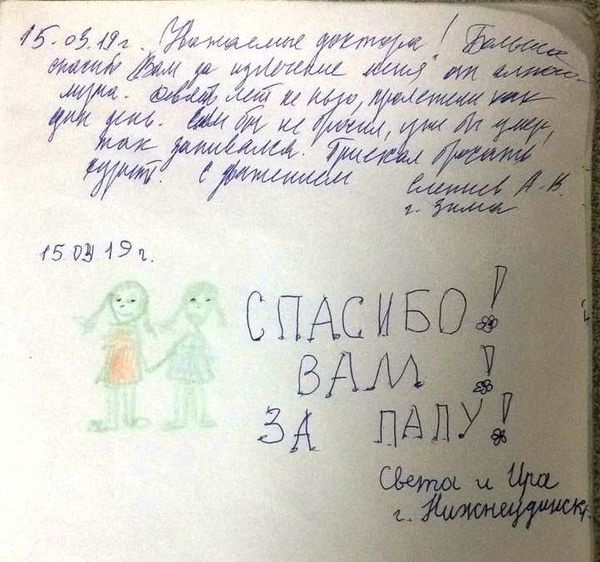 15.03.19г. Уважаемые доктора! Большое
спасибо Вам за излечение меня от алкого-
лизма. Девять лет не пью, пролетели как
один день. Если бы не бросил, уже бы умер,
так запивался. Приехал бросать
курить. С уважением А.В.
г. Зима
15.03 19г.
СПАСИБО!
ВАМ!
ЗА ПАПУ!
Света и Ира
г. Нижнеудинск